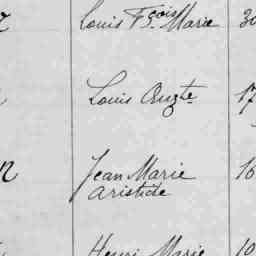 Louis Fçois Marie 30
Louis Augte 17
Jean Marie 16
Aristide
Henri Marie 10